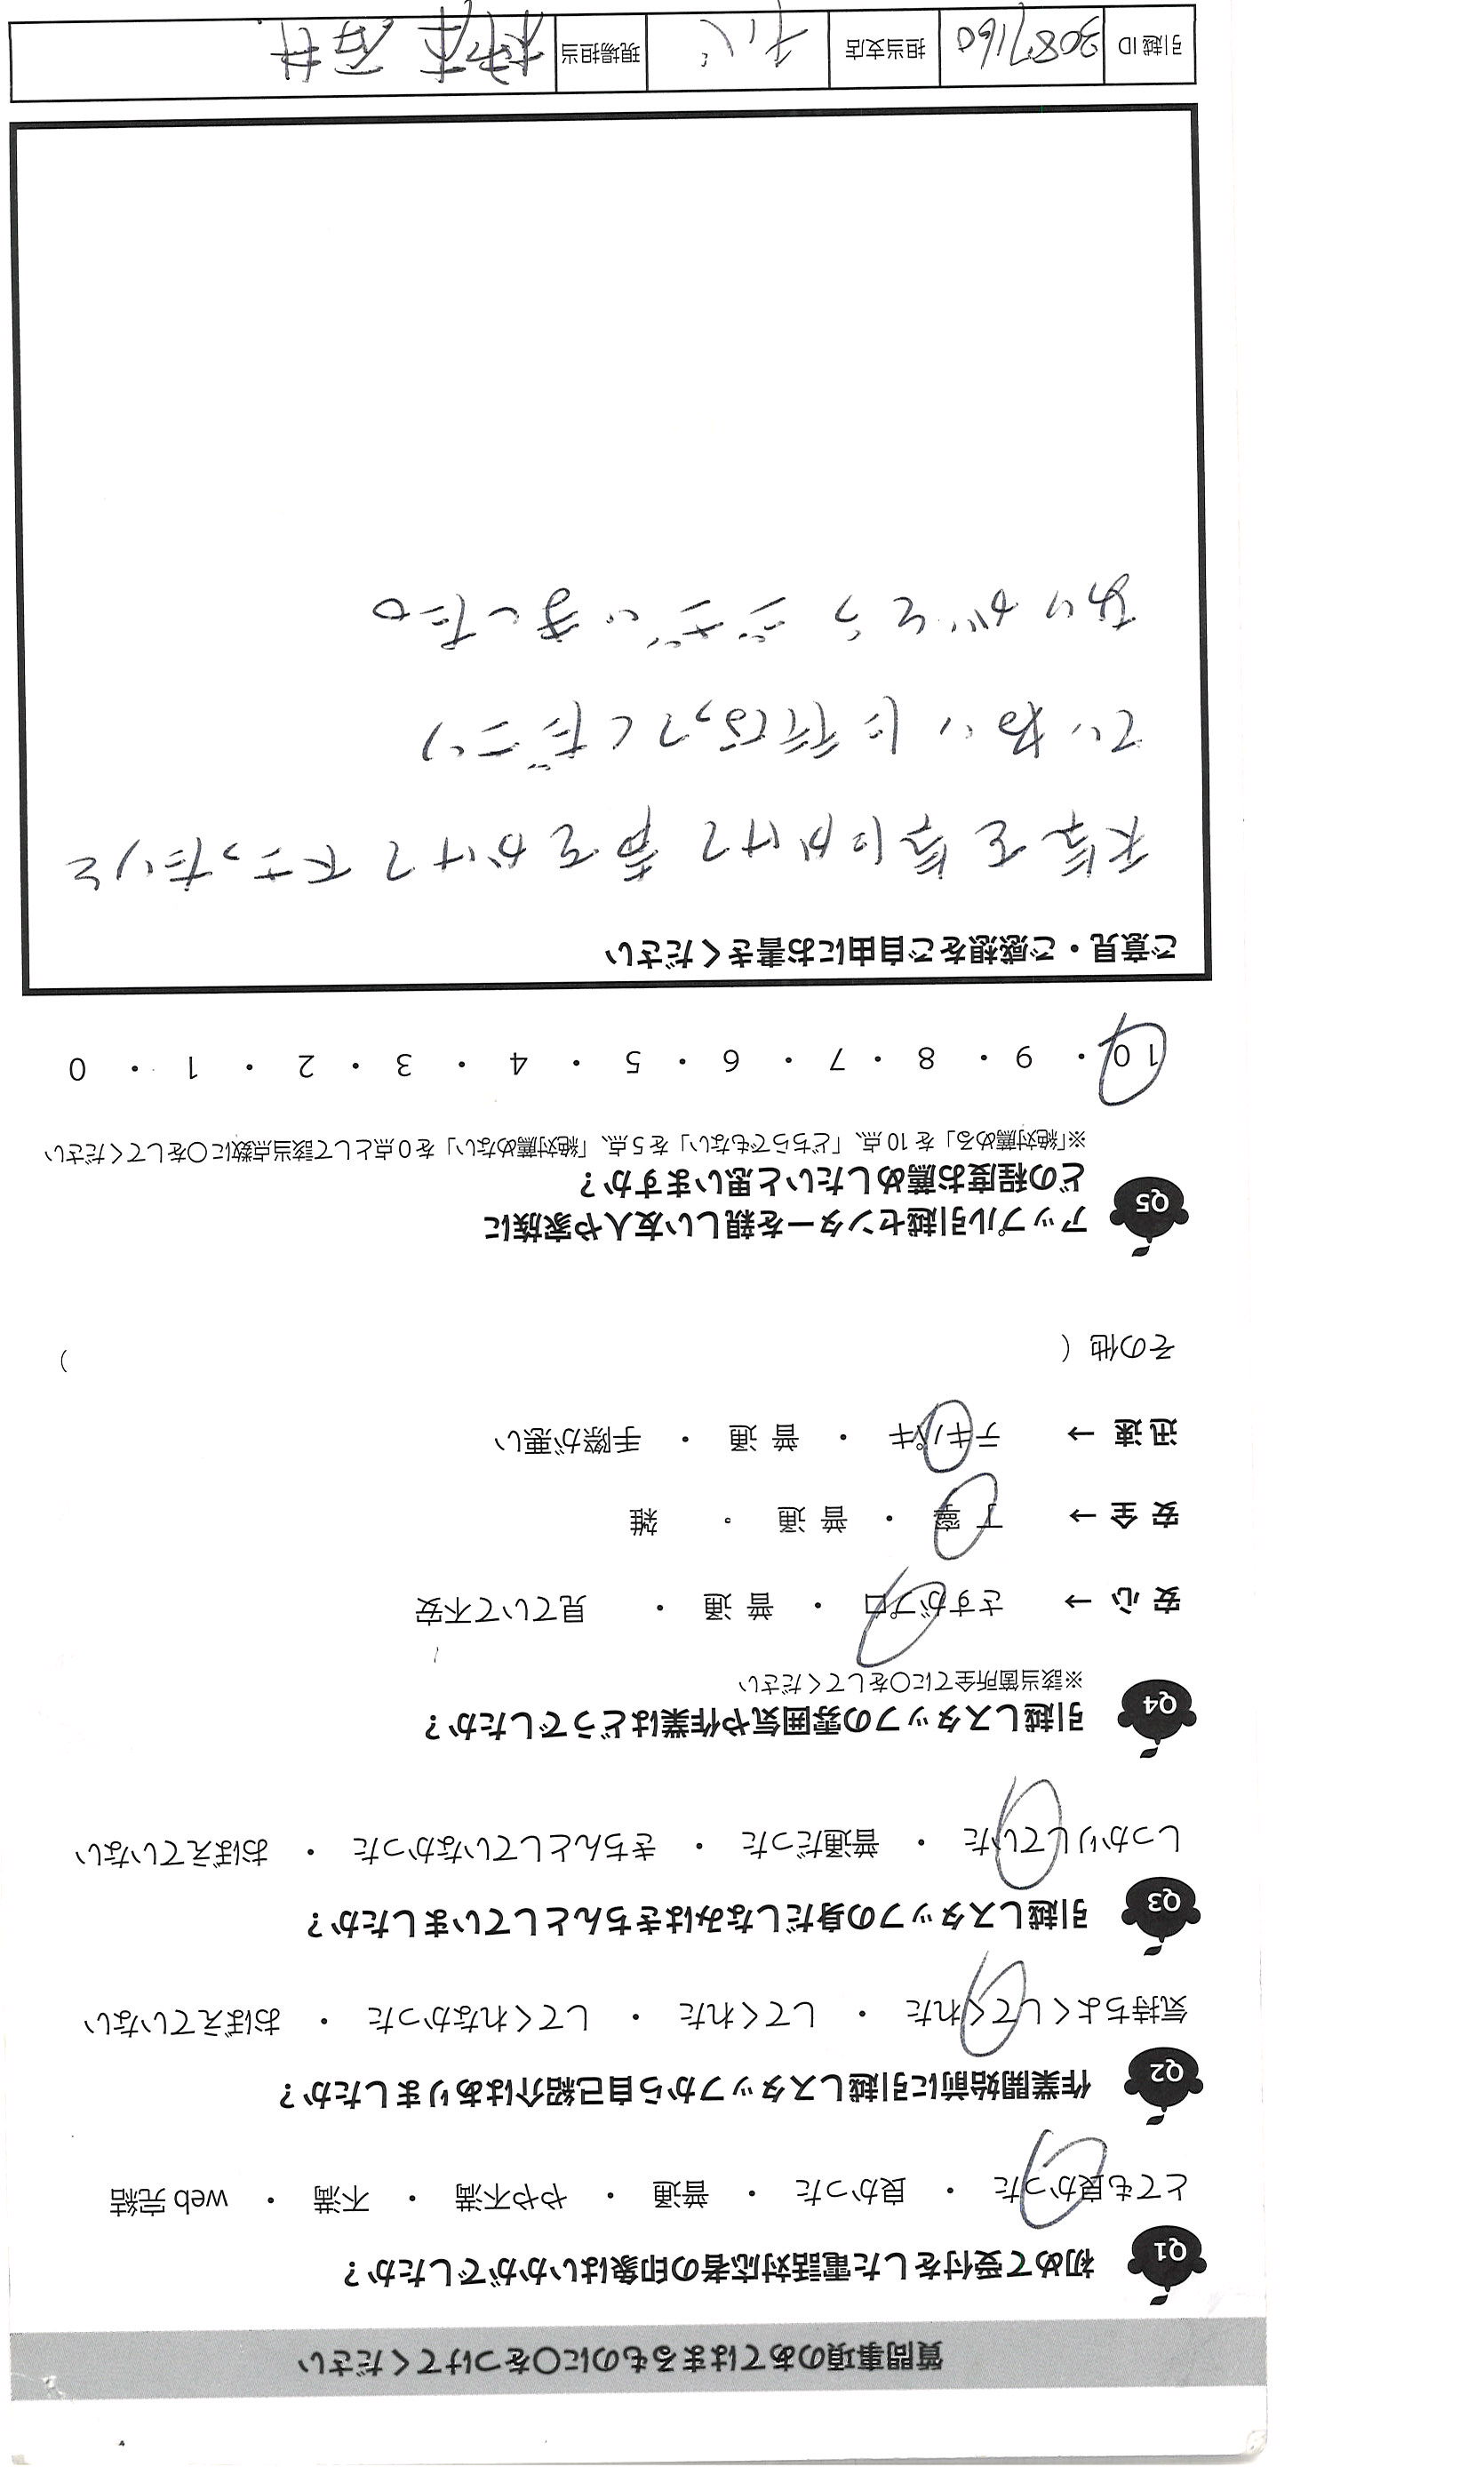 質問事項のあてはまるものに○をつけてください
Q1 初めて受付をした電話対応者の印象はいかがでしたか？
とても良かった ・ 良かった ・ 普通 ・ やや不満 ・ 不満 ・ web 完結
Q2 作業開始前に引越しスタッフから自己紹介はありましたか？
気持ちよくしてくれた ・ してくれた ・ してくれなかった ・ おぼえていない
Q3 引越しスタッフの身だしなみはきちんとしていましたか？
しっかりしていた ・ 普通だった ・ きちんとしていなかった ・ おぼえていない
Q4 引越しスタッフの雰囲気や作業はどうでしたか？
※該当箇所全てに○をしてください
安心 → さすがプロ ・ 普通 ・ 見ていて不安
安全 → 丁寧 ・ 普通 ・ 雑
迅速 → テキパキ ・ 普通 ・ 手際が悪い
その他（ ）
Q5 アップル引越センターを親しい友人や家族に
どの程度お薦めしたいと思いますか？
※「絶対薦める」を10点、「どちらでもない」を5点、「絶対薦めない」を0点として該当点数に○をしてください
10 ・ 9 ・ 8 ・ 7 ・ 6 ・ 5 ・ 4 ・ 3 ・ 2 ・ 1 ・ 0
ご意見・ご感想をご自由にお書きください
天気を気にかけて 声をかけて下さったりと
ていねいに行なってくださり
ありがとうございました。
引越ID 3087160 担当支店 チバ 現場担当